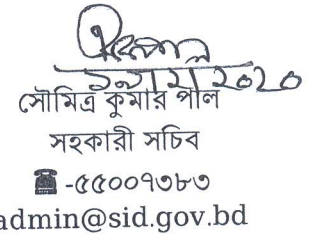 সৌমিত্র কুমার পাল
সহকারী সচিব
☎-৫৫০০৭৩৮৩
admin@sid.gov.bd